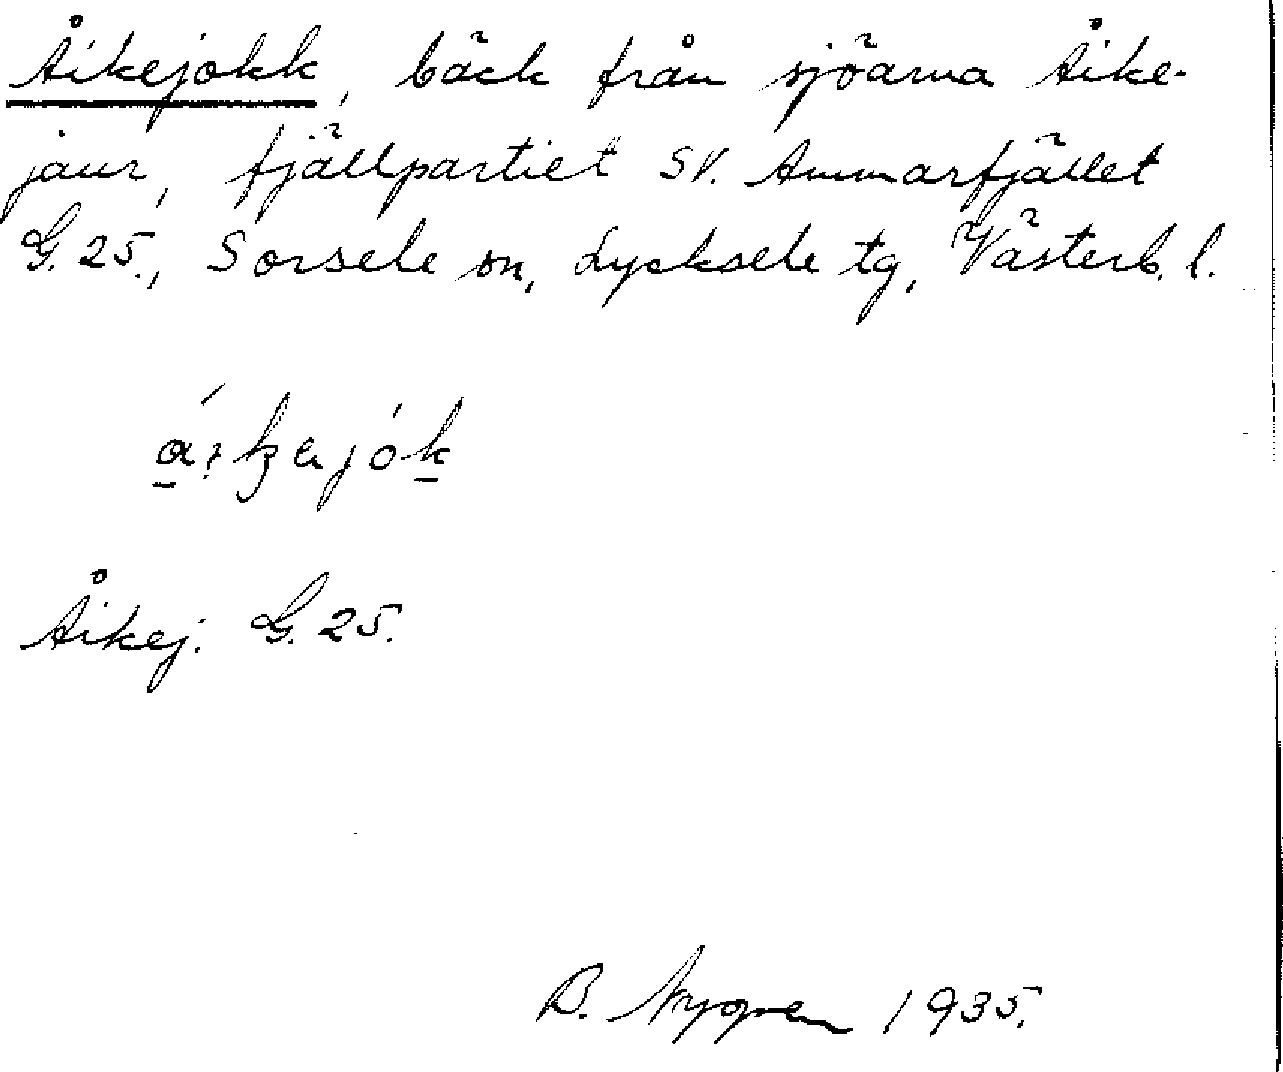 Åikejokk, bäck från sjöarna Åike-
jaur, fjällpartiet SV. Ammarfjället
G. 25., Sorsele sn, Lycksele tg, Västerb. l.
Åikej. G. 25.
B. 1935.